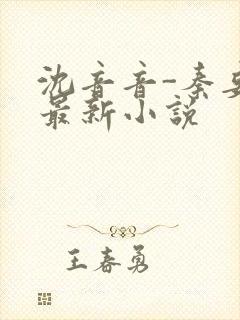 沈音音-秦
最新小说
王春勇